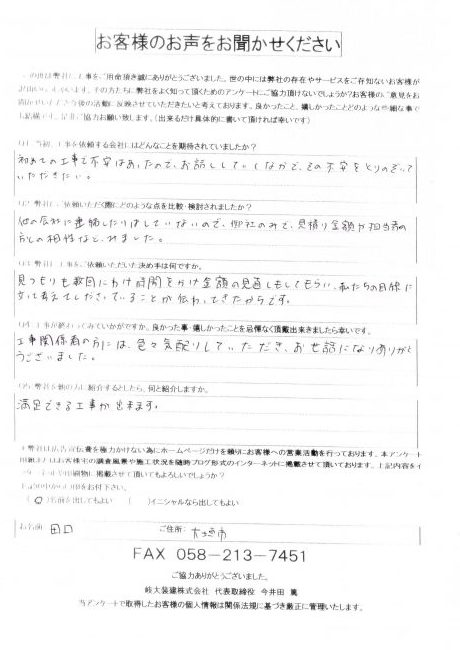 お客様のお声をお聞かせください
この度は弊社に工事をご用命頂き誠にありがとうございました。世の中には弊社の存在やサービスをご存知ないお客様が
沢山いらっしゃいます。その方たちに弊社をよく知って頂くためのアンケートにご協力頂けないでしょうか?お客様のご意見をお
聞かせいただき今後の活動に反映させていただきたいと考えております。良かったこと、嬉しかったことどのような些細な事で
も結構です。是非ご協力お願い致します。(出来るだけ具体的に書いて頂ければ幸いです)
Q1 当初、工事を依頼する会社にはどんなことを期待されていましたか?
初めての工事で不安はあったので、お話ししていくなかで、その不安をとりのぞいて
いただきたい。
Q2 弊社にご依頼いただく際にどのような点を比較・検討されましたか?
他の会社に連絡したりはしていないので、御社のみで、見積り金額や担当者の
方との相性など、みました。
Q3 弊社に工事をご依頼いただいた決め手は何ですか。
見つもりも数回にわけ時間をかけ金額の見直しもしてもらい、私たちの目線に
なって考えてくださっていることが伝わってきたからです。
Q4 工事が終わってみていかがですか。良かった事・嬉しかったことを忌憚なく頂戴出来ましたら幸いです。
工事関係者の方には、色々気配りしていただき、お世話になりありがと
うございました。
Q5 弊社を他の方に紹介するとしたら、何と紹介しますか。
満足できる工事が出来ます。
弊社は広告宣伝費を極力かけない為にホームページだけを頼りにお客様への営業活動を行っております。本アンケート
用紙またはお客様宅の調査風景や施工状況を随時ブログ形式のインターネットに掲載させて頂いております。上記内容をイ
ンターネットや印刷物に掲載させて頂いてもよろしいでしょうか?
(○)名前を出してもよい ( )イニシャルなら出してもよい
お名前 田口 ご住所: 大垣市
FAX 058-213-7451
ご協力ありがとうございました。
岐大装建株式会社 代表取締役 今井田 篤
当アンケートで取得したお客様の個人情報は関係法規に基づき厳正に管理いたします。